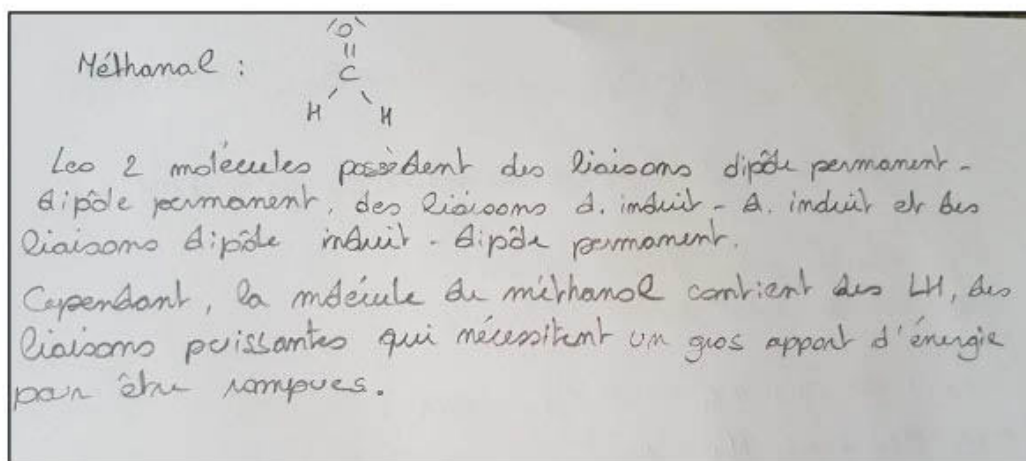 Méthanal :
|O|
||
C
H H
Les 2 molécules possèdent des liaisons dipôle permanent -
dipôle permanent, des liaisons d. induit - d. induit et des
liaisons dipôle induit - dipôle permanent.
Cependant, la molécule de méthanol contient des LH, des
liaisons puissantes qui nécessitent un gros apport d'énergie
pour être rompues.